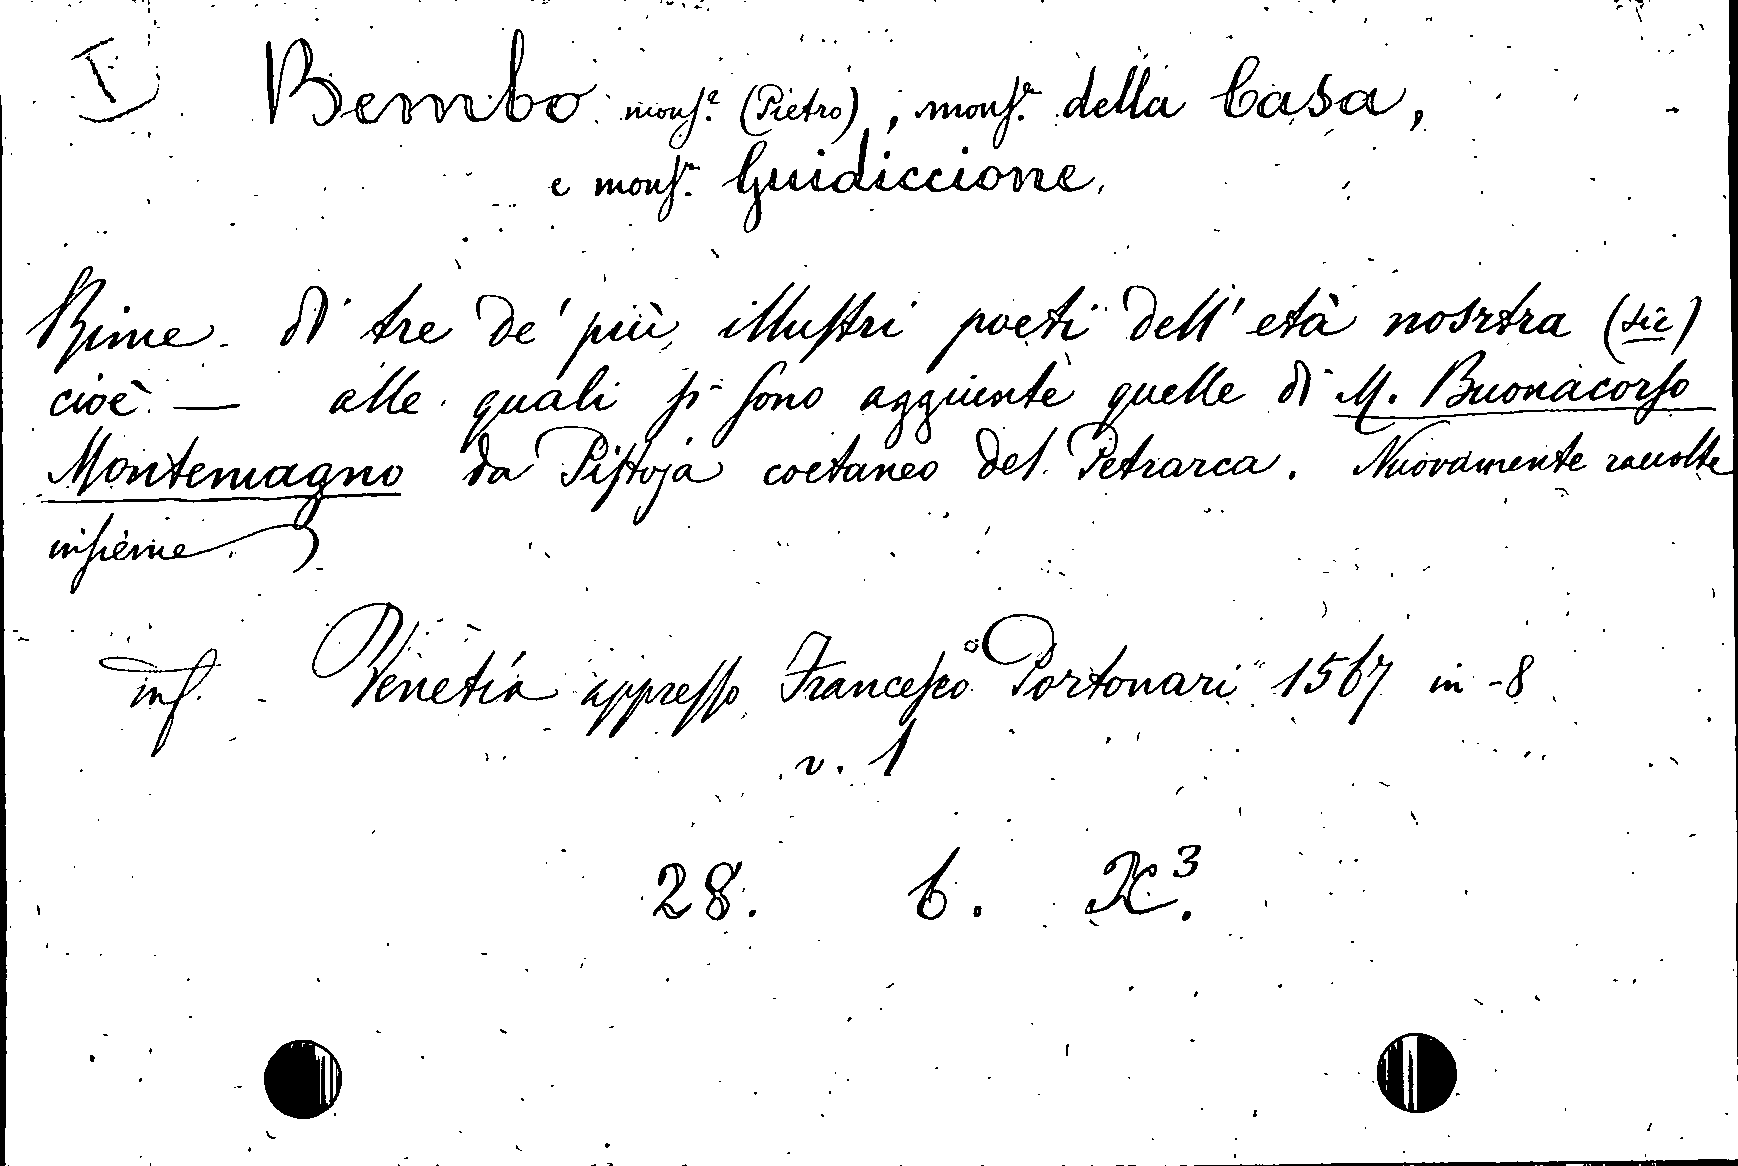 I Bembo monsr. (Pietro), monsr. della Casa,
e monsr. Guidiccione.
Rime di tre de' più illustri poeti dell' età nosrtra (sic)
cioè — alle quali si sono aggiunte quelle di M. Buonacorso
Montemagno da Pistoja coetaneo del Petrarca. Nuovamente raccolte
insieme.
inf. Venetia appresso Francesco Portonari 1567 in-8
v. 1
28. 6. X³.